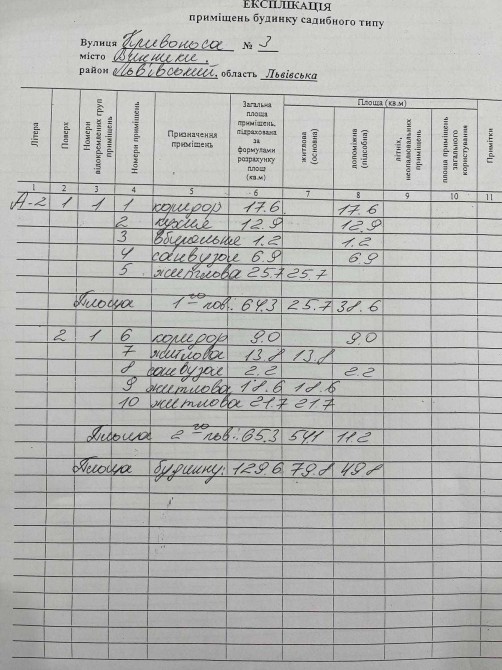 ЕКСПЛІКАЦІЯ
приміщень будинку садибного типу
Вулиця Кривоноса № 3
місто Винники.
район Львівський, область Львівська
Літера Поверх Номери відокремлених груп приміщень Номери приміщень Призначення приміщень Загальна площа приміщень, підрахована за формулами розрахунку площ (кв.м) Площа (кв.м) житлова (основна) допоміжна (підсобна) літніх, неопалювальних приміщень площа приміщень загального користування Примітки
1 2 3 4 5 6 7 8 9 10 11
А-2 1 1 1 коридор 17.6 17.6
2 кухня 12.9 12.9
3 вбиральня 1.2 1.2
4 санвузол 6.9 6.9
5 житлова 25.7 25.7
Площа 1го пов.: 64.3 25.7 38.6
2 1 6 коридор 9.0 9.0
7 житлова 13.8 13.8
8 санвузол 2.2 2.2
9 житлова 18.6 18.6
10 житлова 21.7 21.7
Площа 2го пов.: 65.3 54.1 11.2
Площа будинку: 129.6 79.8 49.8